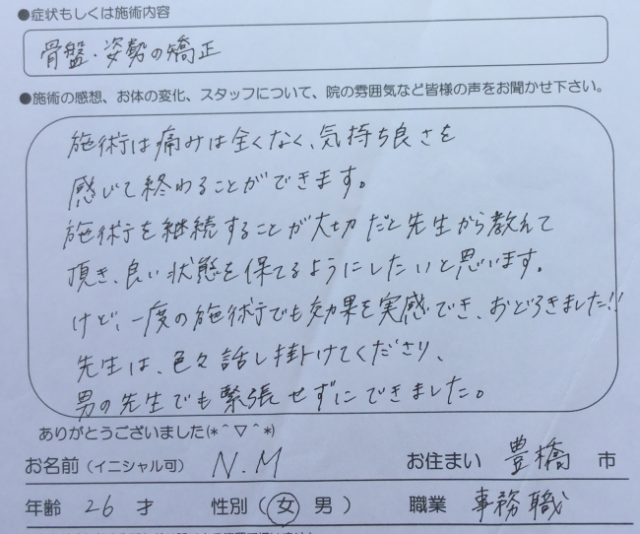 ●症状もしくは施術内容
骨盤・姿勢の矯正
●施術の感想、お体の変化、スタッフについて、院の雰囲気など皆様の声をお聞かせ下さい。
施術は痛みは全くなく、気持ち良さを
感じて終わることができます。
施術を継続することが大切だと先生から教えて
頂き、良い状態を保てるようにしたいと思います。
けど、一度の施術でも効果を実感でき、おどろきました!!
先生は、色々話し掛けてくださり、
男の先生でも緊張せずにできました。
ありがとうございました(*^▽^*)
お名前(イニシャル可) N.M お住まい 豊橋 市
年齢 26 才 性別(女 男) 職業 事務職